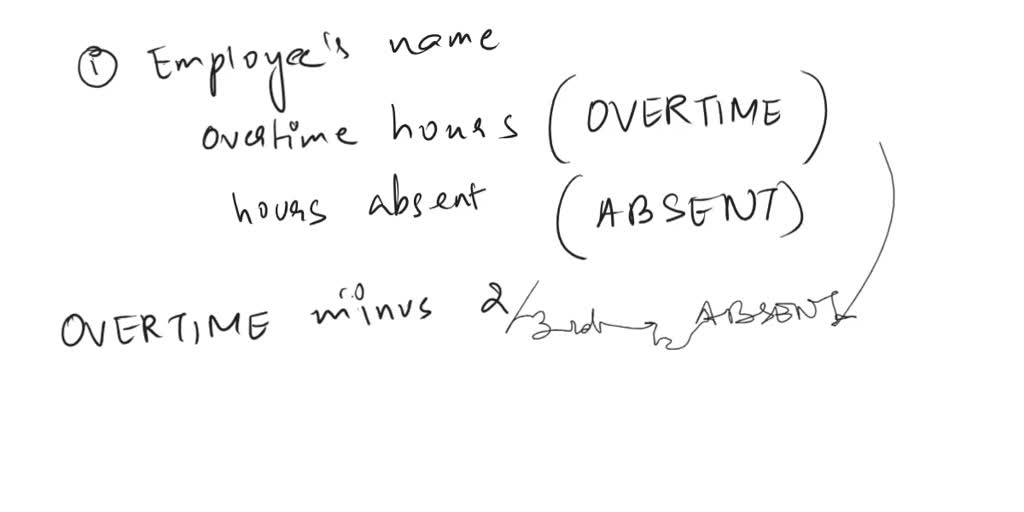 ① Employee's name
overtime hours (OVERTIME)
hours absent (ABSENT)
OVERTIME minus 2/3rd ABSENT